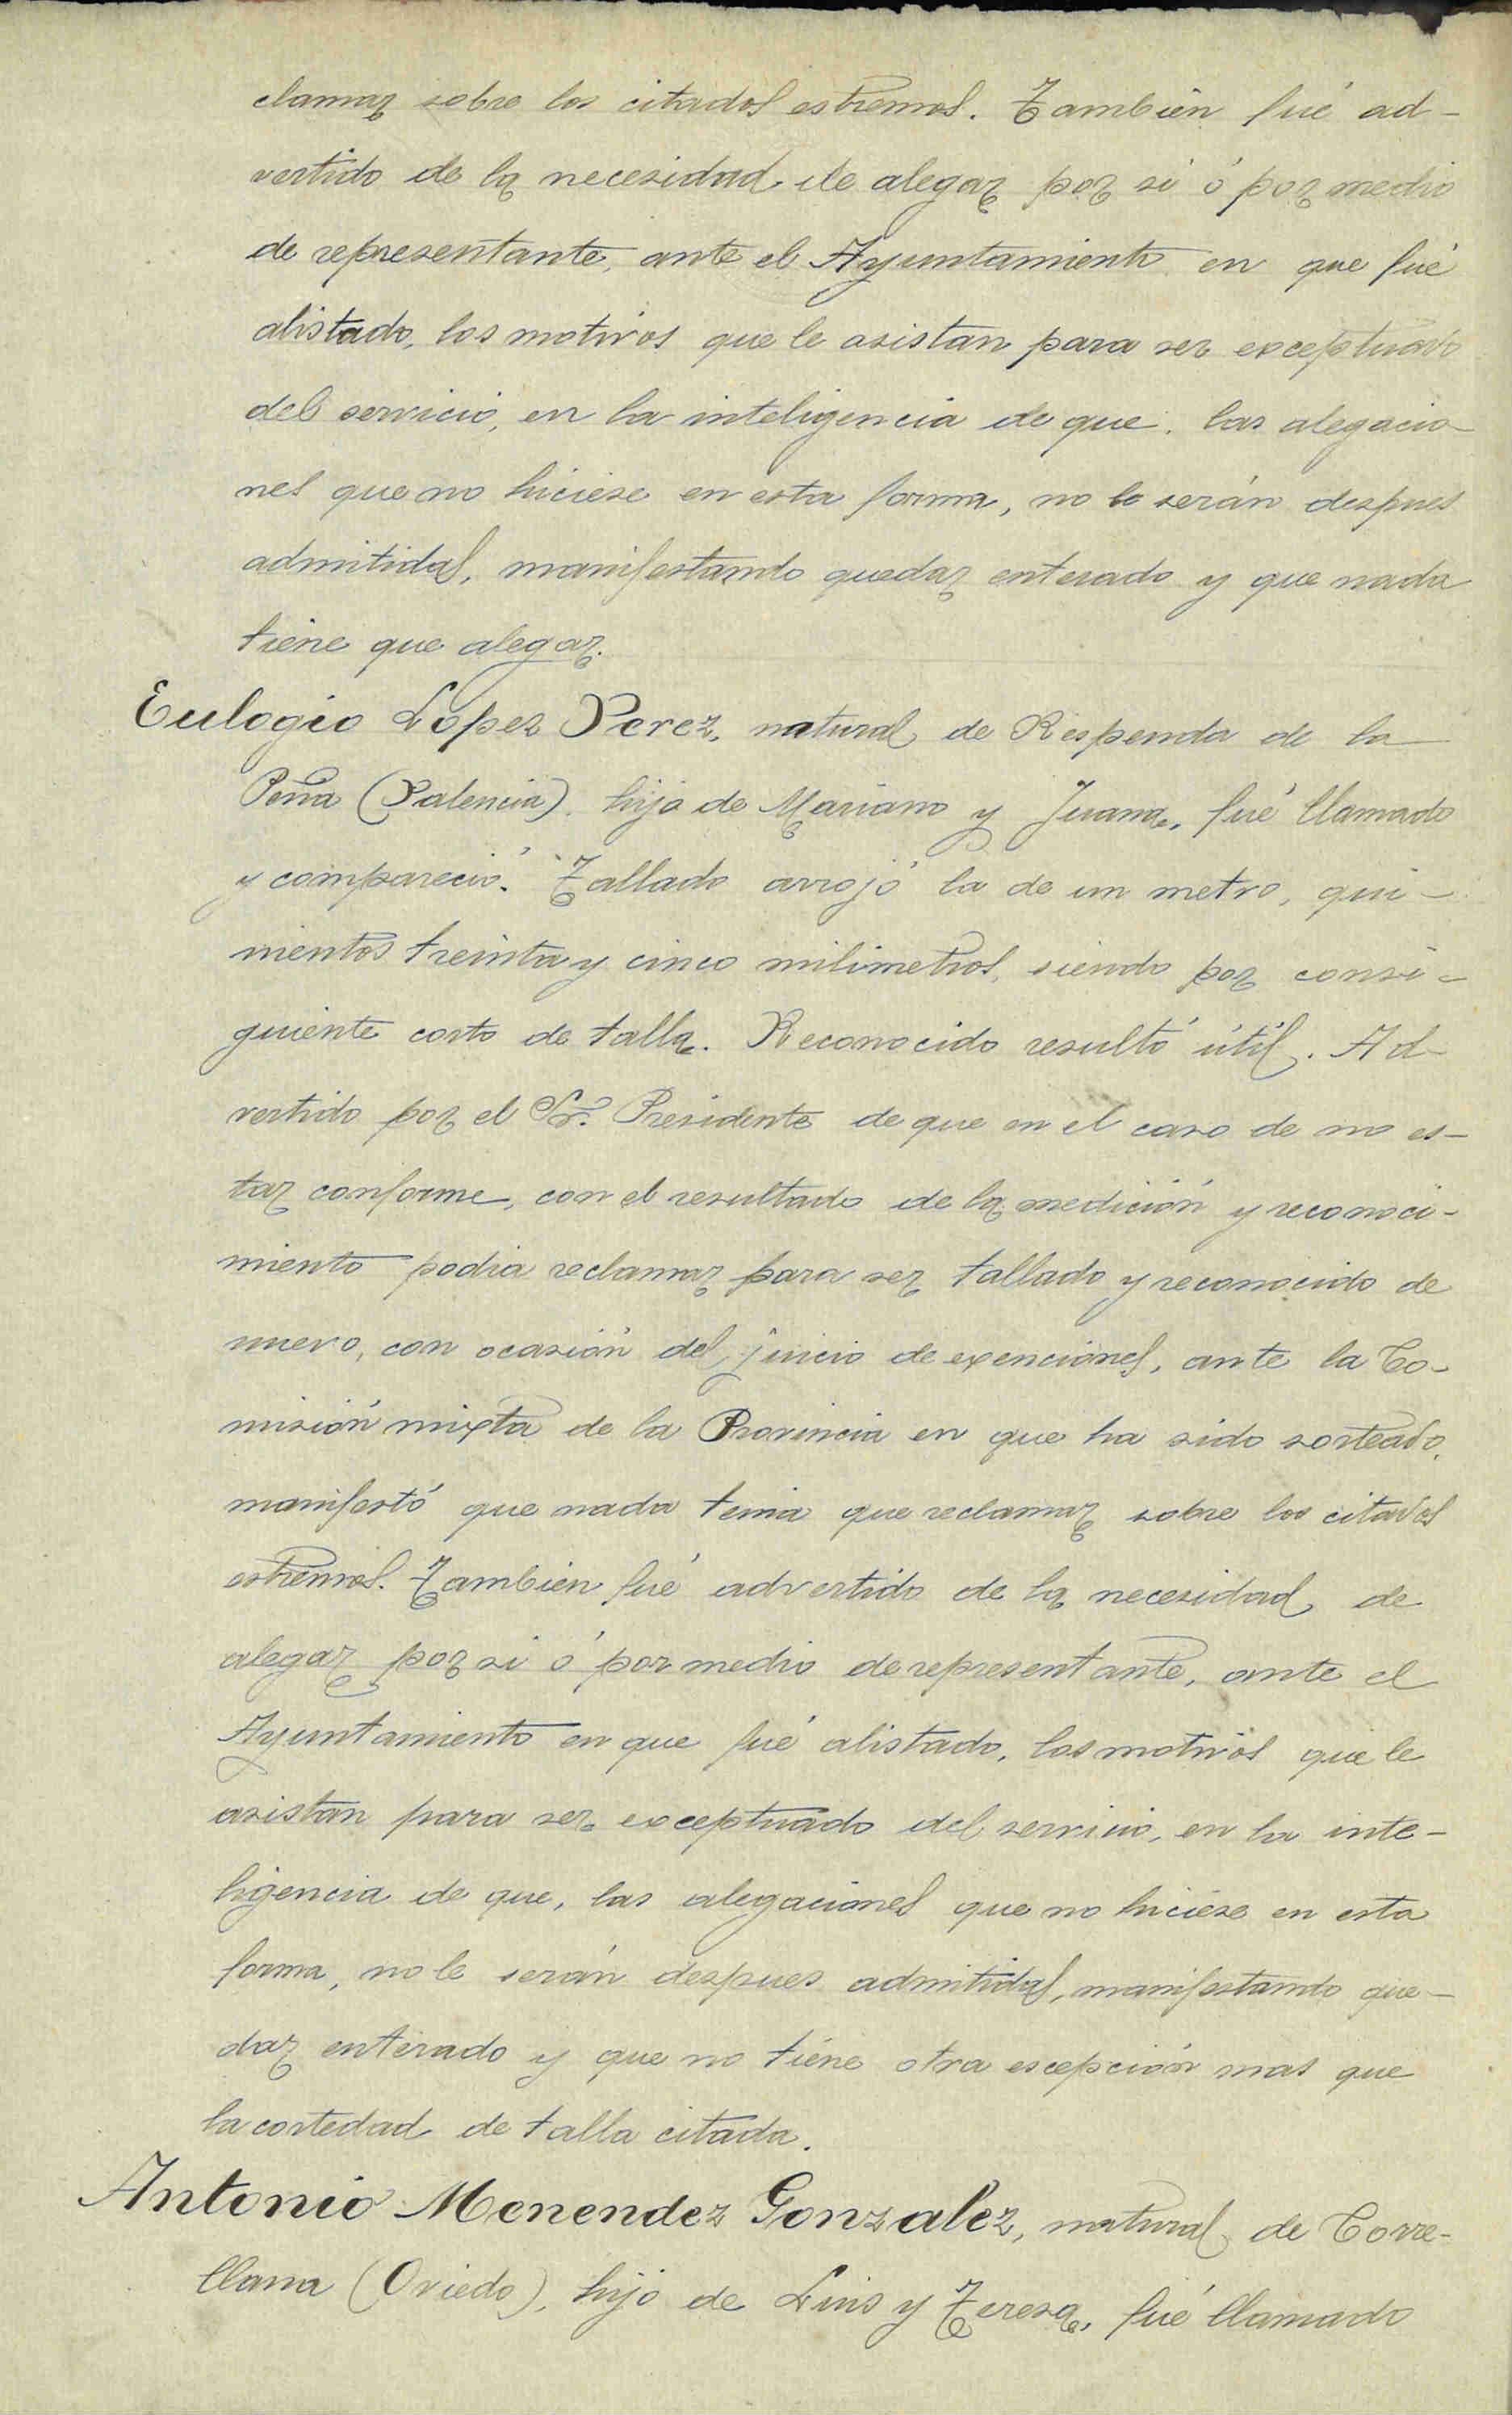 clamar sobre los citados estremos. Tambien fué ad-
vertido de la necesidad de alegar por si ó por medio
de representante, ante el Ayuntamiento en que fué
alistado, los motivos que le asistan para ser exceptuado
del servicio, en la inteligencia de que, las alegacio-
nes que no hiciese en esta forma, no le serán despues
admitidas, manifestando quedar enterado y que nada
tiene que alegar.
Eulogio Lopez Perez, natural de Respenda de la
Peña (Palencia), hijo de Mariano y Juana, fué llamado
y compareció. Tallado arrojó la de un metro, qui-
nientos treinta y cinco milimetros, siendo por consi-
guiente corto de talla. Reconocido resultó útil. Ad-
vertido por el Sr. Presidente de que en el caso de no es-
tar conforme, con el resultado de la medición y reconoci-
miento podia reclamar para ser tallado y reconocido de
nuevo, con ocasión del juicio de exenciones, ante la Co-
misión mixta de la Provincia en que ha sido sorteado,
manifestó que nada tenia que reclamar sobre los citados
estremos. Tambien fué advertido de la necesidad de
alegar por si ó por medio de representante, ante el
Ayuntamiento en que fué alistado, los motivos que le
asistan para ser exceptuado del servicio, en la inte-
ligencia de que, las alegaciones que no hiciese en esta
forma, no le serán despues admitidas, manifestando que-
dar enterado y que no tiene otra escepción mas que
la cortedad de talla citada.
Antonio Menendez Gonzalez, natural de Corre-
llana (Oviedo), hijo de Luis y Teresa, fué llamado